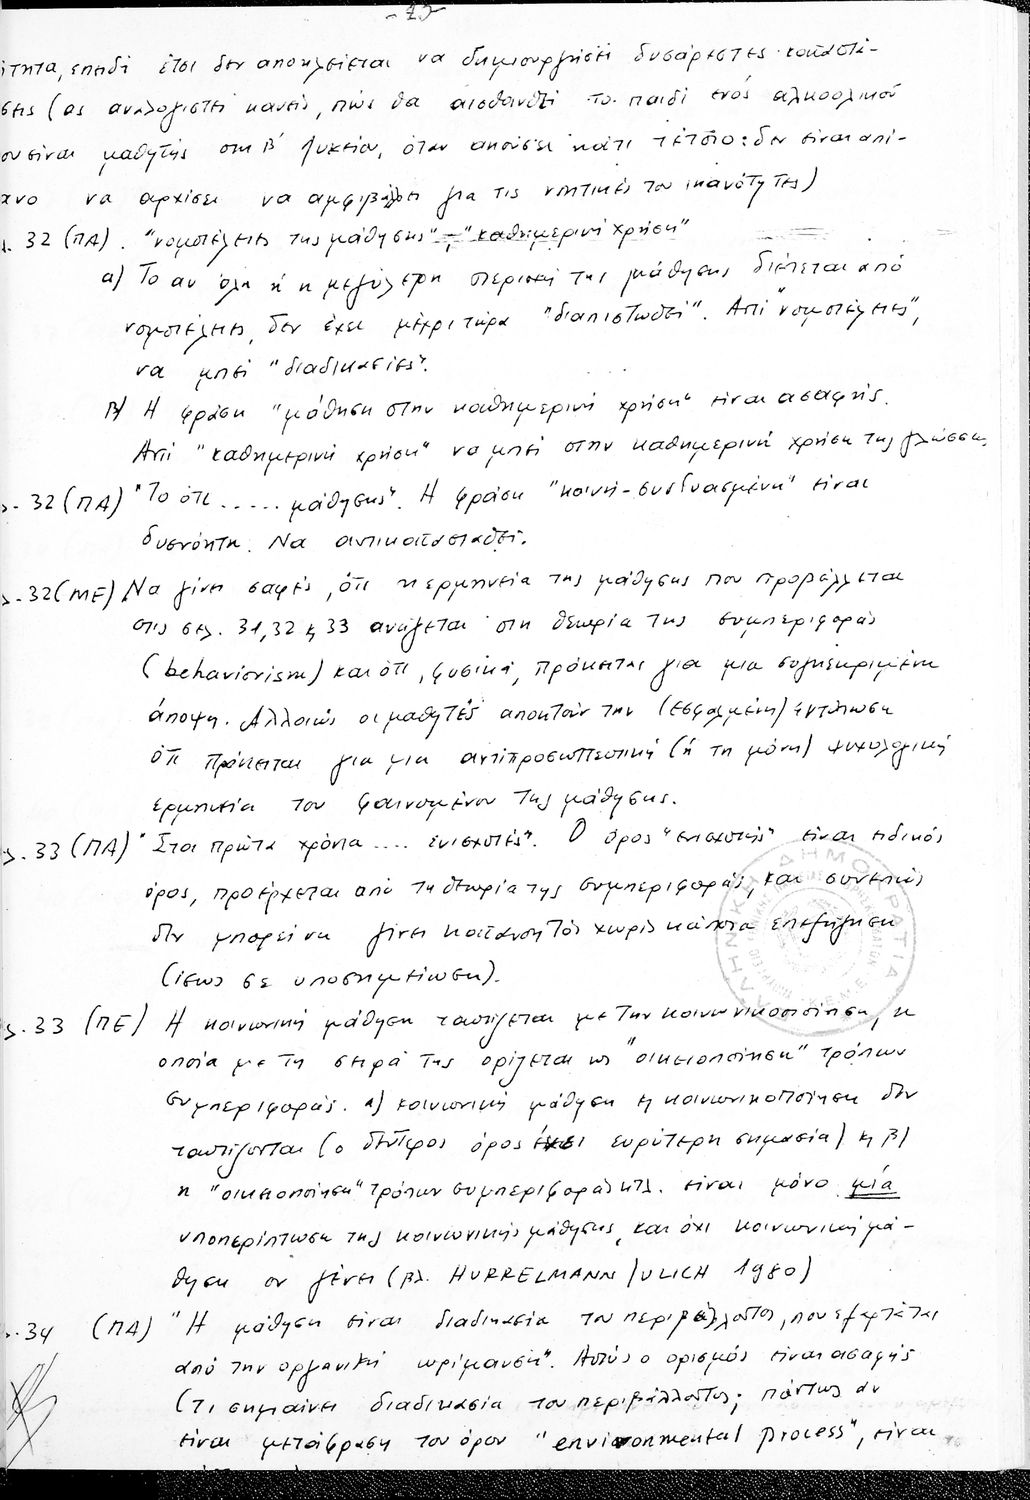 - 23 -
ιτητα, επειδή έτσι δεν αποκλείεται να δημιουργήσει δυσάρεστες καταστά-
σεις (ας αναλογιστεί κανείς, πώς θα αισθανθεί το παιδί ενός αλκοολικού
ου είναι μαθητής στη Β' Λυκείου, όταν ακούσει κάτι τέτοιο: δεν είναι απί-
ανο να αρχίσει να αμφιβάλλει για τις νοητικές του ικανότητες)
. 32 (ΠΑ). "νομοτέλειες της μάθησης" - "καθημερινή χρήση"
α) Το αν όλη ή η μεγαλύτερη περιοχή της μάθησης διέπεται από
νομοτέλειες, δεν έχει μέχρι τώρα "διαπιστωθεί". Αντί "νομοτέλειες",
να μπεί "διαδικασίες".
β) Η φράση "μάθηση στην καθημερινή χρήση" είναι ασαφής.
Αντί "καθημερινή χρήση" να μπεί στην καθημερινή χρήση της γλώσσας.
σ. 32 (ΠΑ) "Το ότι ..... μάθησης". Η φράση "κοινή-συνδυασμένη" είναι
δυσνόητη. Να αντικατασταθεί.
σ. 32 (ΜΕ) Να γίνει σαφές, ότι η ερμηνεία της μάθησης που προβάλλεται
στις σελ. 31, 32 ϗ 33 ανάγεται στη θεωρία της συμπεριφοράς
(behaviorism) και ότι, φυσικά, πρόκειται για μια συγκεκριμένη
άποψη. Αλλοιώς οι μαθητές αποκτούν την (εσφαλμένη) εντύπωση
ότι πρόκειται για μια αντιπροσωπευτική (ή τη μόνη) ψυχολογική
ερμηνεία του φαινομένου της μάθησης.
σ. 33 (ΠΑ) "Στα πρώτα χρόνια .... ενισχυτές". Ο όρος "ενισχυτής" είναι ειδικός
όρος, προέρχεται από τη θεωρία της συμπεριφοράς, και συνεπώς
δεν μπορεί να γίνει κατανοητός χωρίς κάποια επεξήγηση
(ίσως σε υποσημείωση).
σ. 33 (ΠΕ) Η κοινωνική μάθηση ταυτίζεται με την κοινωνικοποίηση, η
οποία με τη σειρά της ορίζεται ως "οικειοποίηση" τρόπων
συμπεριφοράς. α) κοινωνική μάθηση ϗ κοινωνικοποίηση δεν
ταυτίζονται (ο δεύτερος όρος έχει ευρύτερη σημασία) ϗ β)
η "οικειοποίηση" τρόπων συμπεριφοράς κτλ. είναι μόνο μία
υποπερίπτωση της κοινωνικής μάθησης, και όχι κοινωνική μά-
θηση εν γένει (βλ. HURRELMANN / ULICH 1980)
. 34 (ΠΑ) "Η μάθηση είναι διαδικασία του περιβάλλοντος, που εξαρτάται
από την οργανική ωρίμανση". Αυτός ο ορισμός είναι ασαφής
(τι σημαίνει διαδικασία του περιβάλλοντος; πάντως αν
είναι μετάφραση του όρου "environmental process", είναι
ΕΛΛΗΝΙΚΗ ΔΗΜΟΚΡΑΤΙΑ